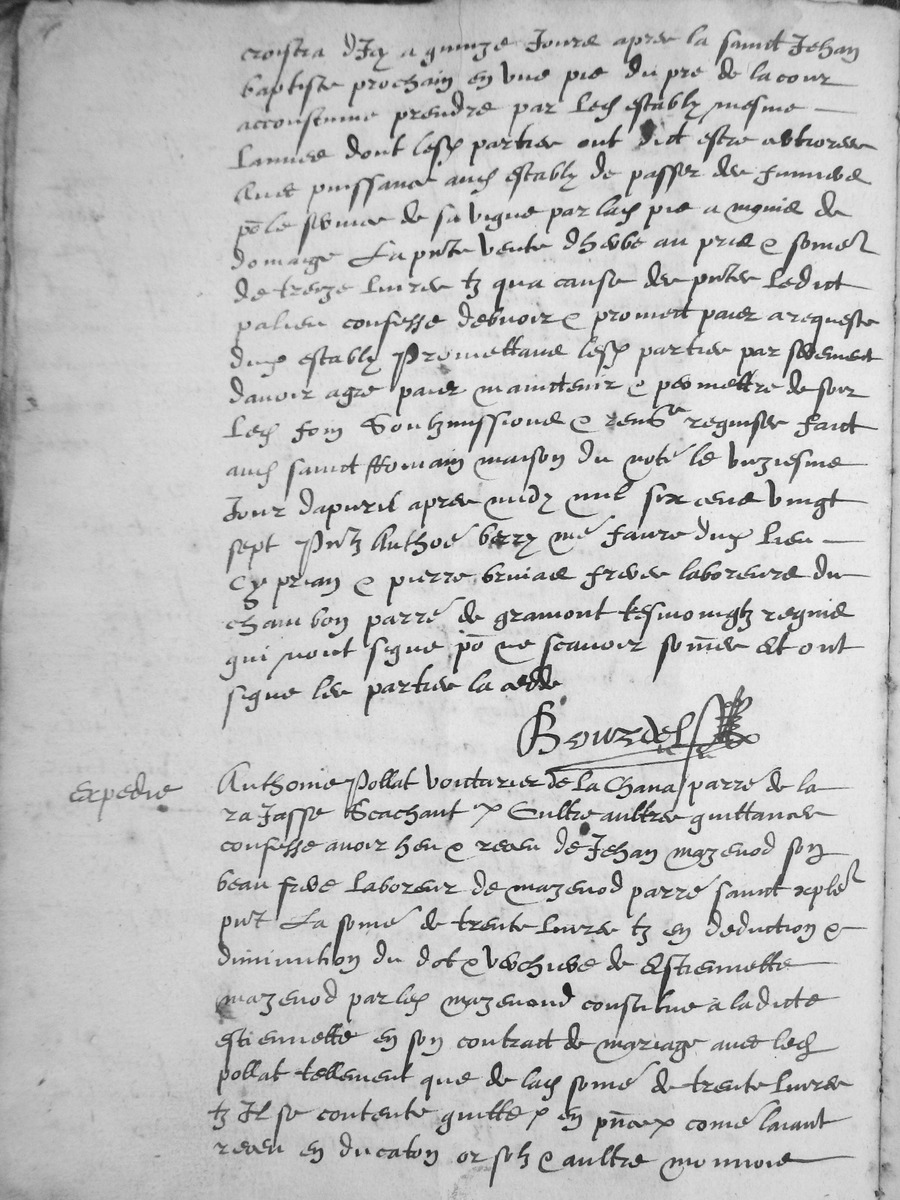 croistra d'Icy a quinze Jours apres la sainct Jehan
baptiste prochain en une pie du pre de la cour
accoustume prendre par led estably mesme
Lannee dont lesd parties ont dict estre
Avec puissance aud estably de passer des
po le de sa vigne par lad pie a moins de
domaige La pnte vente dherbe au pris & some
de treze livres tz qua cause des pntes Ledict
palien confesse debvoir & promect paier a requeste
dud estably Promettans lesd parties par serement
davoir agre paier mainttenir & permettre de soir
Led foin Soubzmissions & renS requises faict
aud sainct Romain maison du note le unziesme
Jour dapvril apres midy mil six cens vingt
sept Pntz Anthoe berry me faure dud Lieu
Cyprian & pierre bruias freres laboreurs du
chambon parre de gramont tesmoingtz requis
qui nont signe po ne scavoir some Et ont
signe les parties la cedde
Bourdel
Expedie
Anthoine Pollat voiturier de La Chana parre de la
ra Jasse Scachant & Oultre aultres quittances
confesse avoir heu & receu de Jehan mazenod son
beau frere Laboreur de mazenod parre sainct
pnt La some de trente Livres tz en deduction &
diminution du dot & verchiere de Estiennette
mazenod par led mazenond constitue a ladicte
estiennette en son contract de mariage avec led
pollat tellement que de lad some de trente Livres
tz Il se contente quitte & en pnce & come layant
receu en ducaton or solz & aultre monnoie